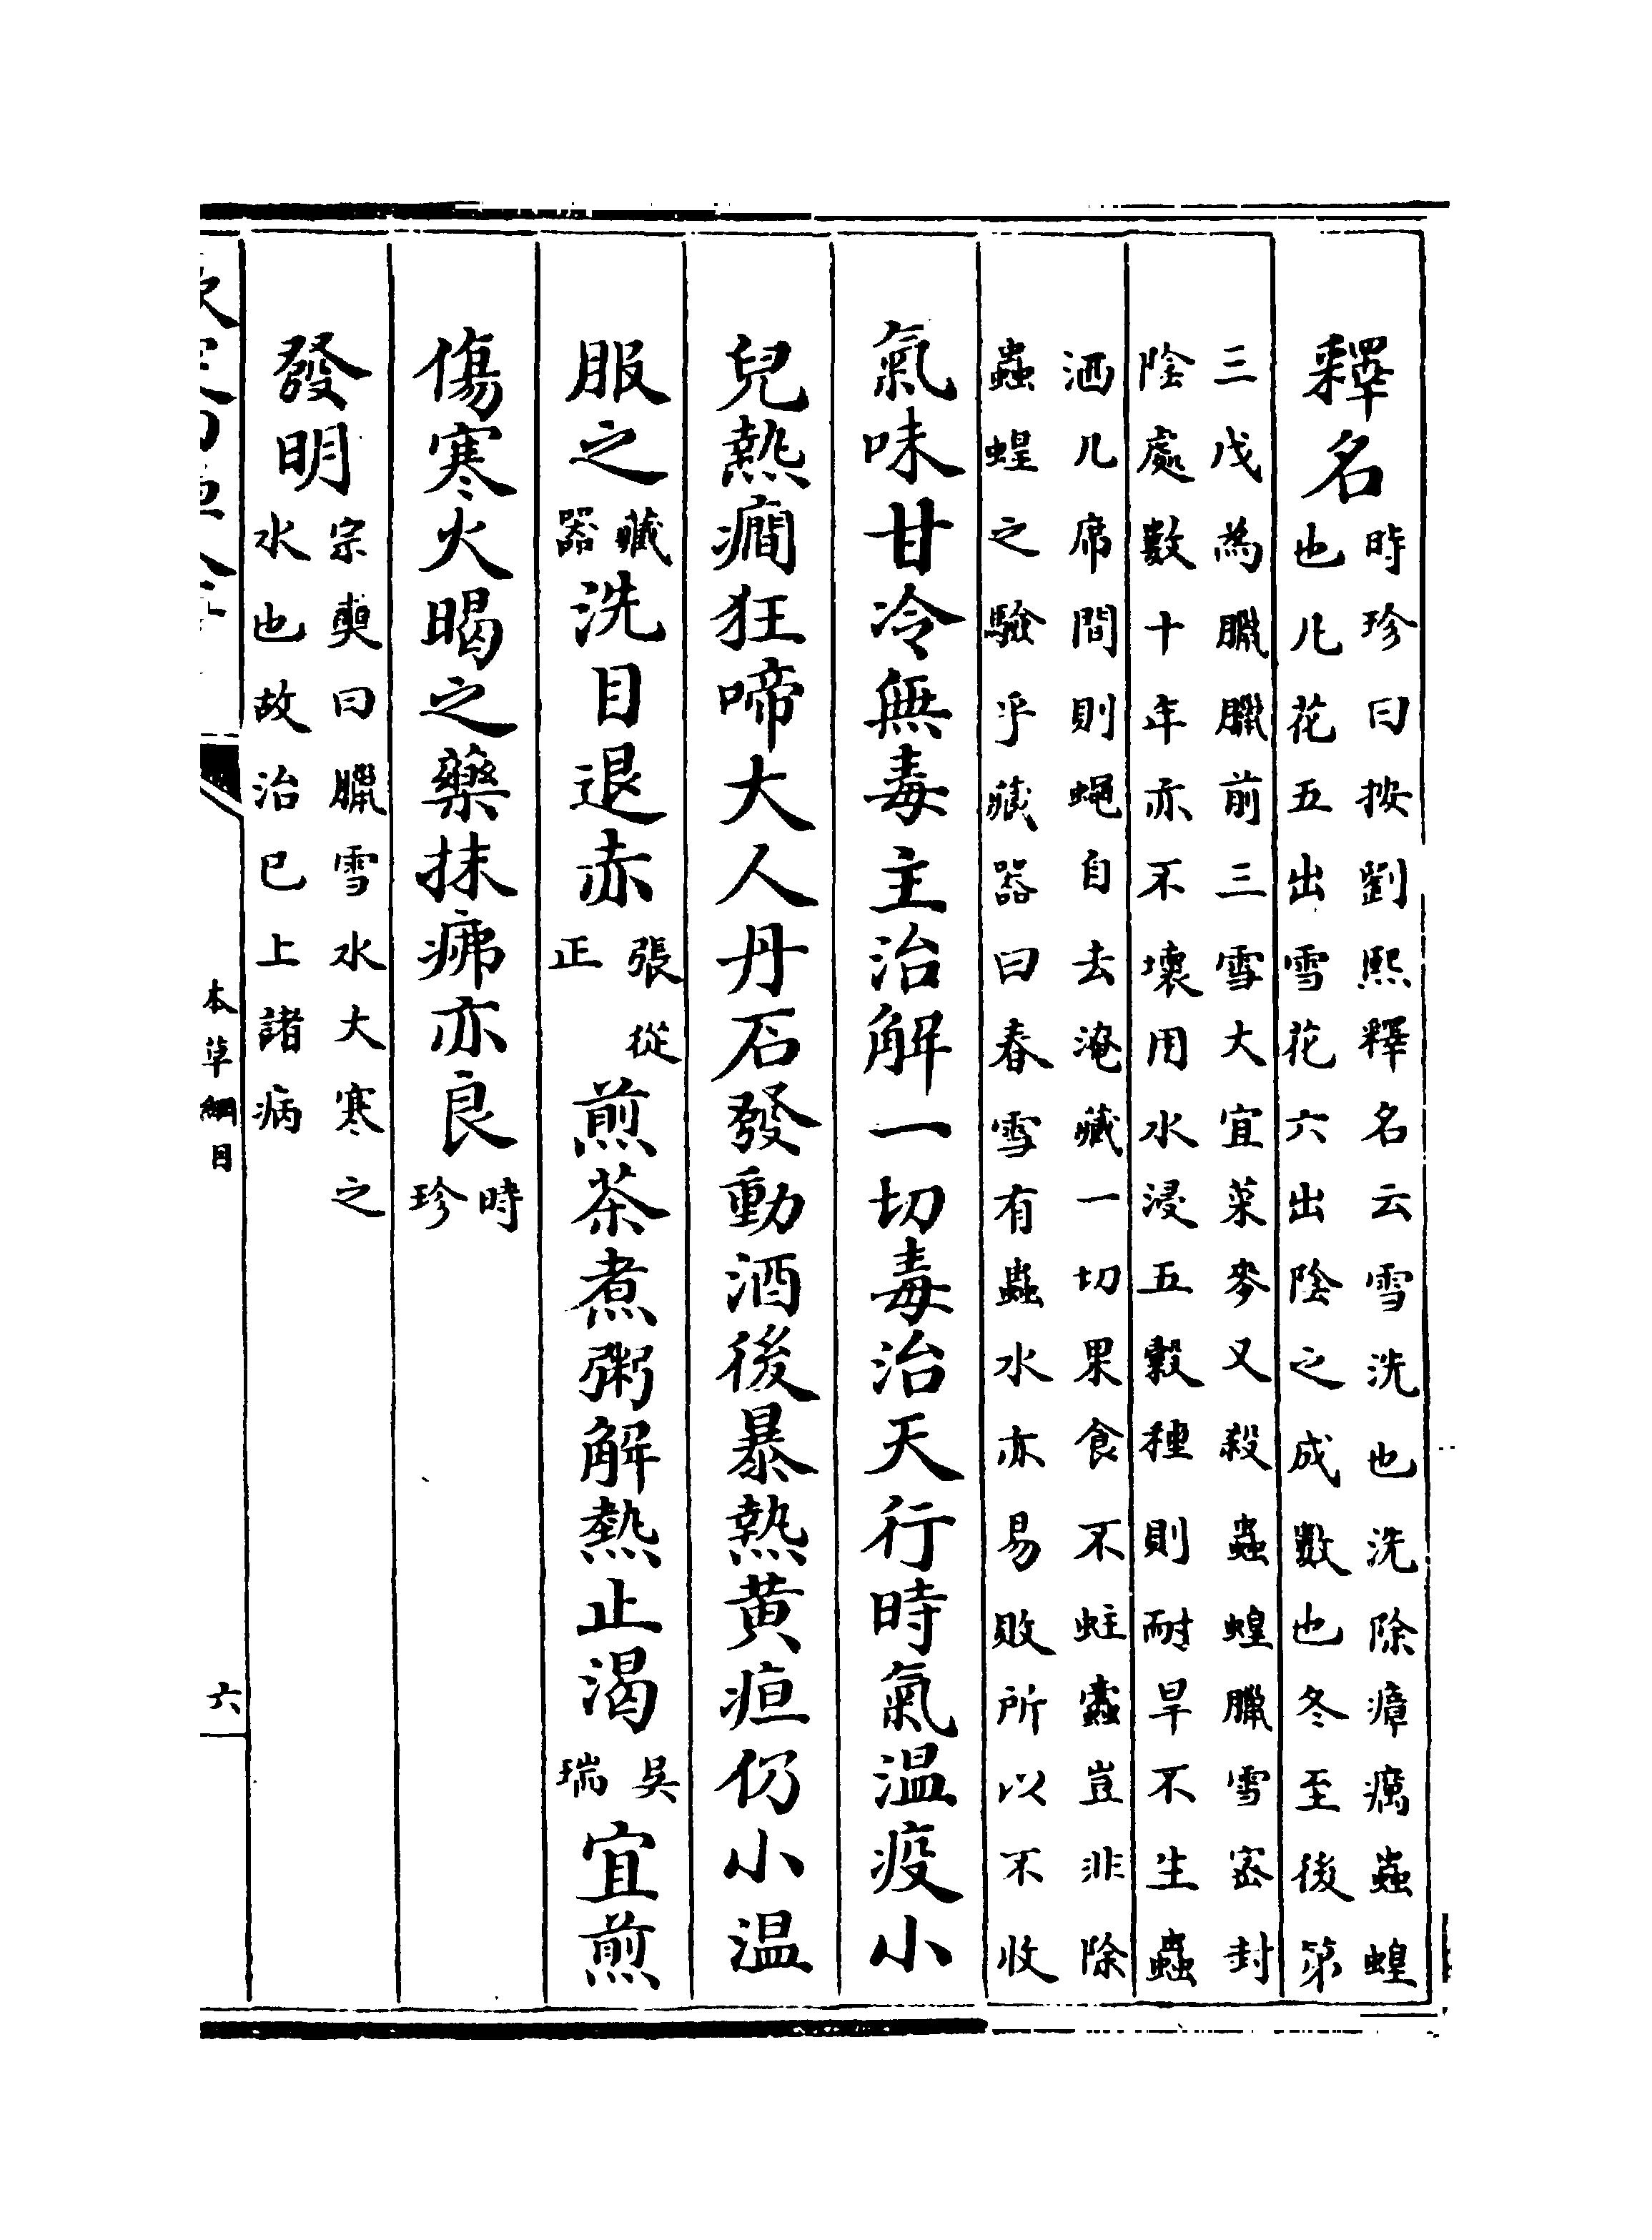 釋名時珍曰按劉熙釋名云雪洗也洗除瘴癘蟲蝗
也凡花五出雪花六出陰之成數也冬至後第
三戊為臘臘前三雪大宜菜麥又殺蟲蝗臘雪密封
陰處數十年亦不壞用水浸五穀種則耐旱不生蟲
洒几席間則蠅自去淹藏一切果食不蛀蠹豈非除
蟲蝗之驗乎藏器曰春雪有蟲水亦易敗所以不收
氣味甘冷無毒主治解一切毒治天行時氣温疫小
兒熱癎狂啼大人丹石發動酒後暴熱黄疸仍小温
服之藏器洗目退赤張從正煎茶煮粥解熱止渴吳瑞宜煎
傷寒火暍之藥抹疿亦良時珍
發明宗奭曰臘雪水大寒之
水也故治已上諸病
本草綱目
六